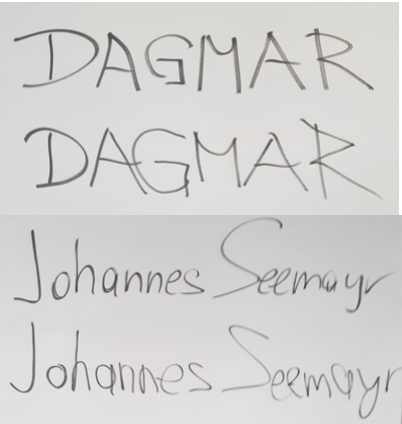 DAGMAR
DAGMAR
Johannes Seemayr
Johannes Seemayr